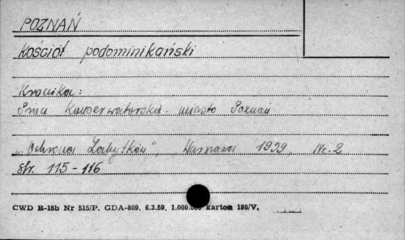 POZNAŃ
Kościół podominikański
Kronika:
Prace Konserwatorskie - miasto Poznań
"Ochrona Zabytków", Warszawa 1959, Nr. 2
str. 115-116
CWD B-15b Nr 515/P. GDA-809. 6.3.59. 1.000.000 karton 180/V.